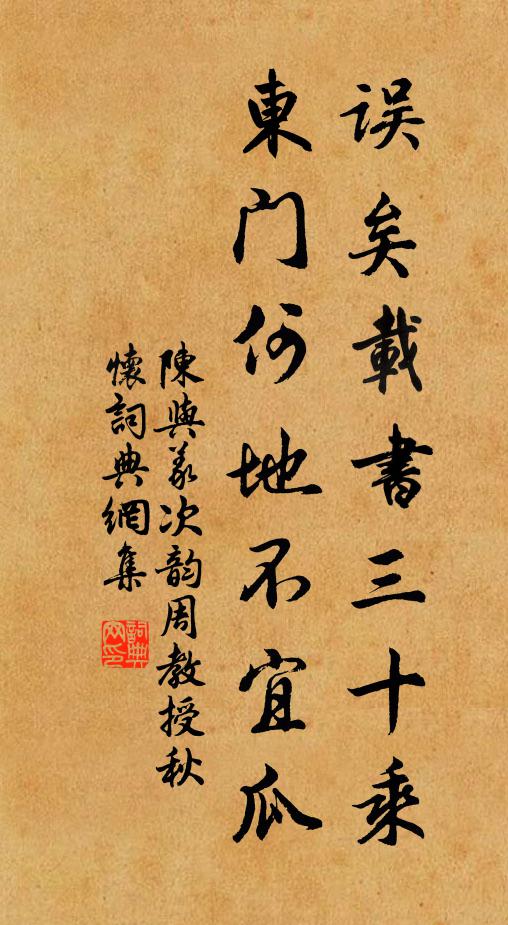 误矣載書三十乘
東門何地不宜瓜
陳與義次韵周教授秋
懷詞典網集
詞典网印